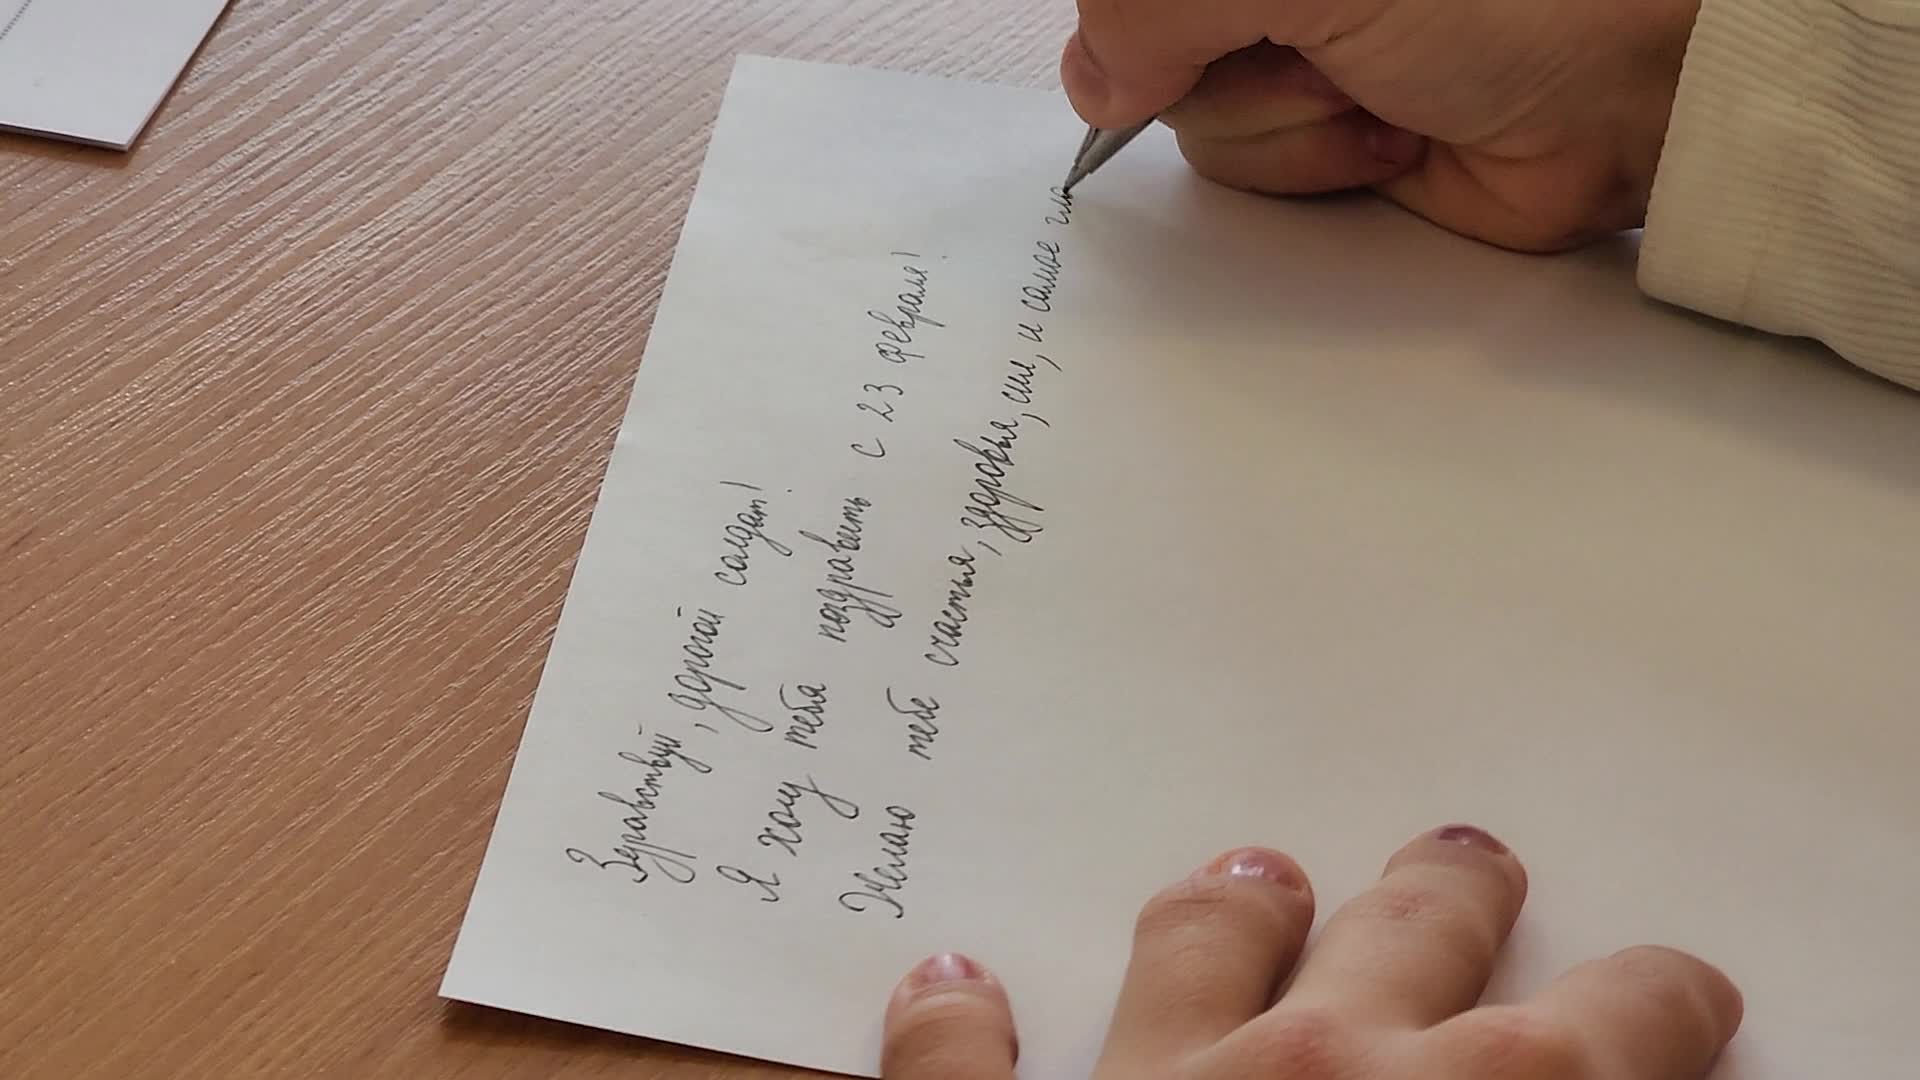 Здравствуй, дорогой солдат!
Я хочу тебя поздравить с 23 февраля!
Желаю тебе счастья, здоровья, сил, и самое гла